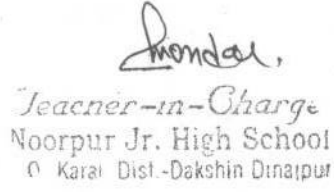 Teacher-in-Charge
Noorpur Jr. High School
Karai Dist.-Dakshin Dinajpur